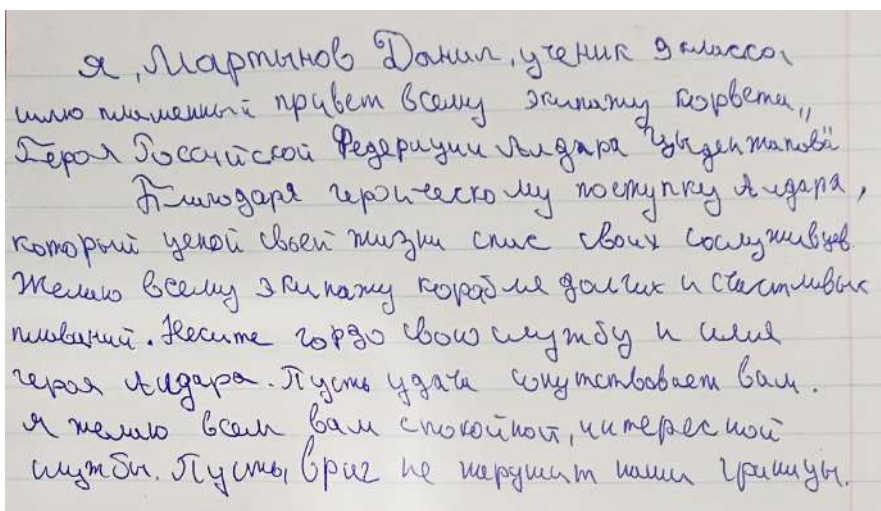 Я, Мартынов Данил, ученик 9 класса,
шлю пламенный привет всему экипажу корвета „
Героя Российской Федерации Алдара Цыденжапова"
Благодаря героическому поступку Алдара,
который ценой своей жизни спас своих сослуживцев.
Желаю всему экипажу корабля долгих и счастливых
плаваний. Несите гордо свою службу и имя
героя Алдара. Пусть удача сопутствовает вам.
Я желаю всем вам спокойной, интересной
службы. Пусть, враг не нарушит наши границы.